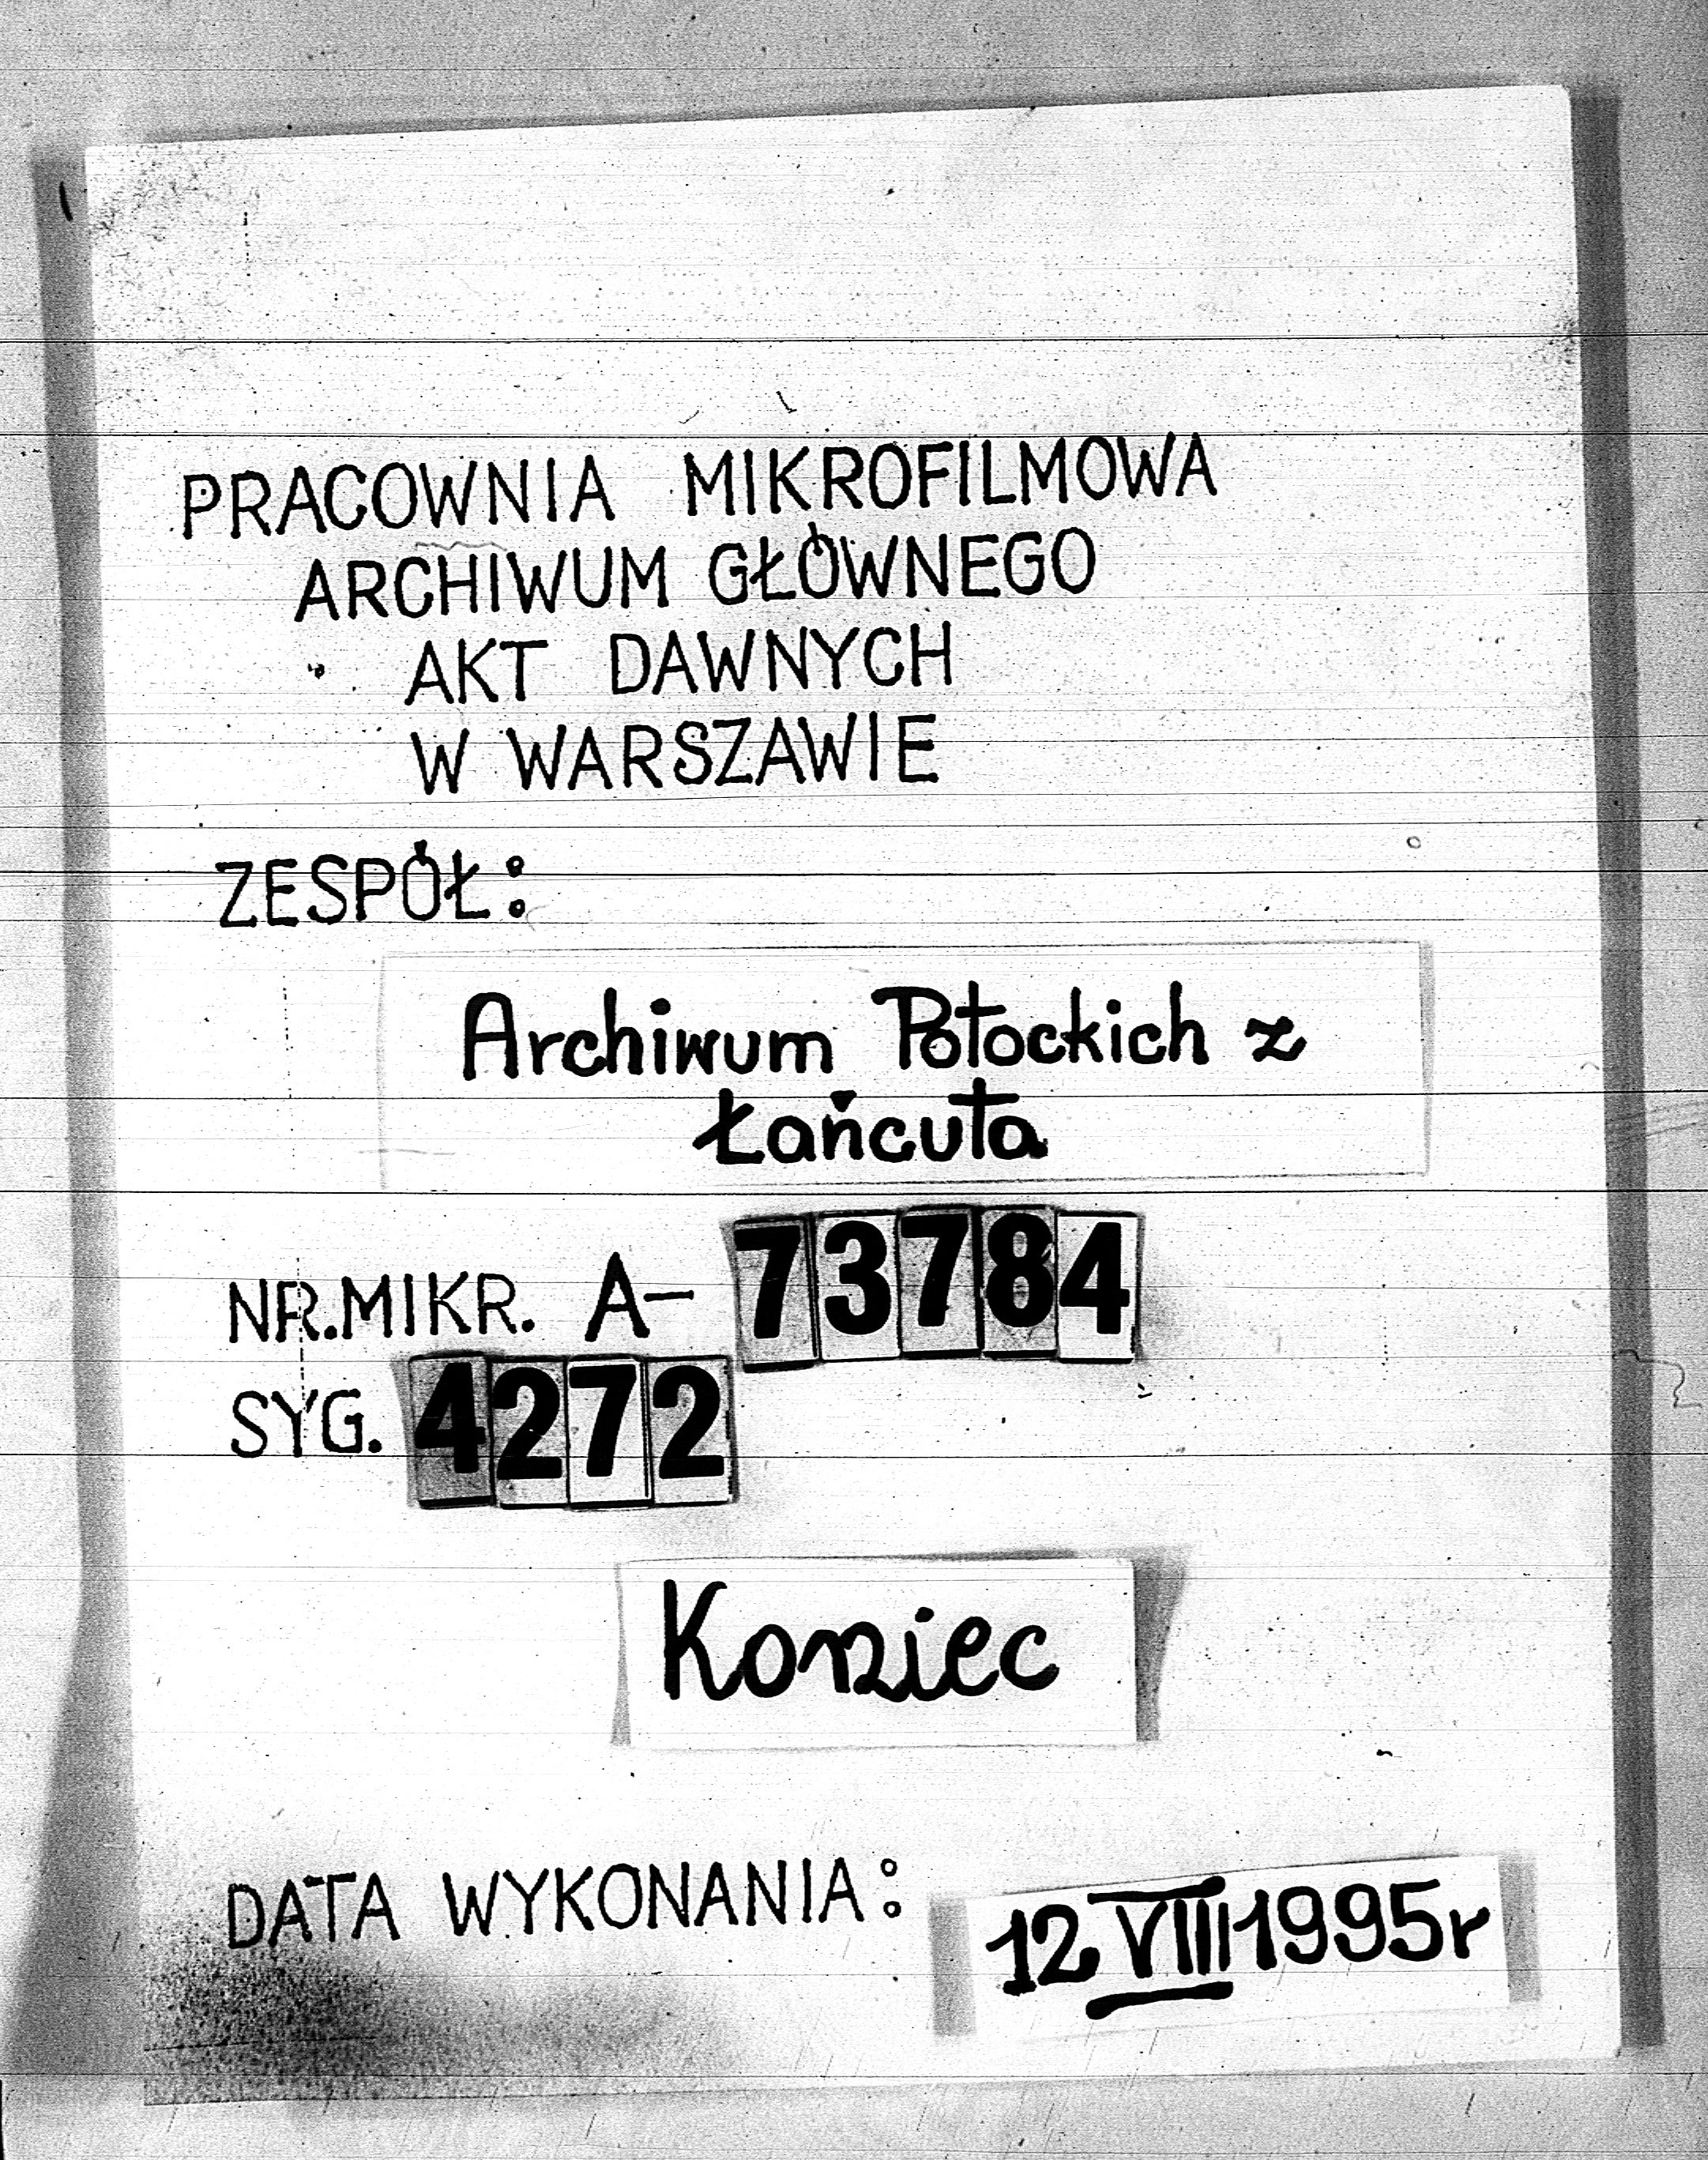 PRACOWNIA MIKROFILMOWA
ARCHIWUM GŁÓWNEGO
AKT DAWNYCH
W WARSZAWIE
ZESPÓŁ:
Archiwum Potockich z
Łańcuta
NR.MIKR. A- 73784
SYG. 4272
Koniec
DATA WYKONANIA: 12 VIII 1995r